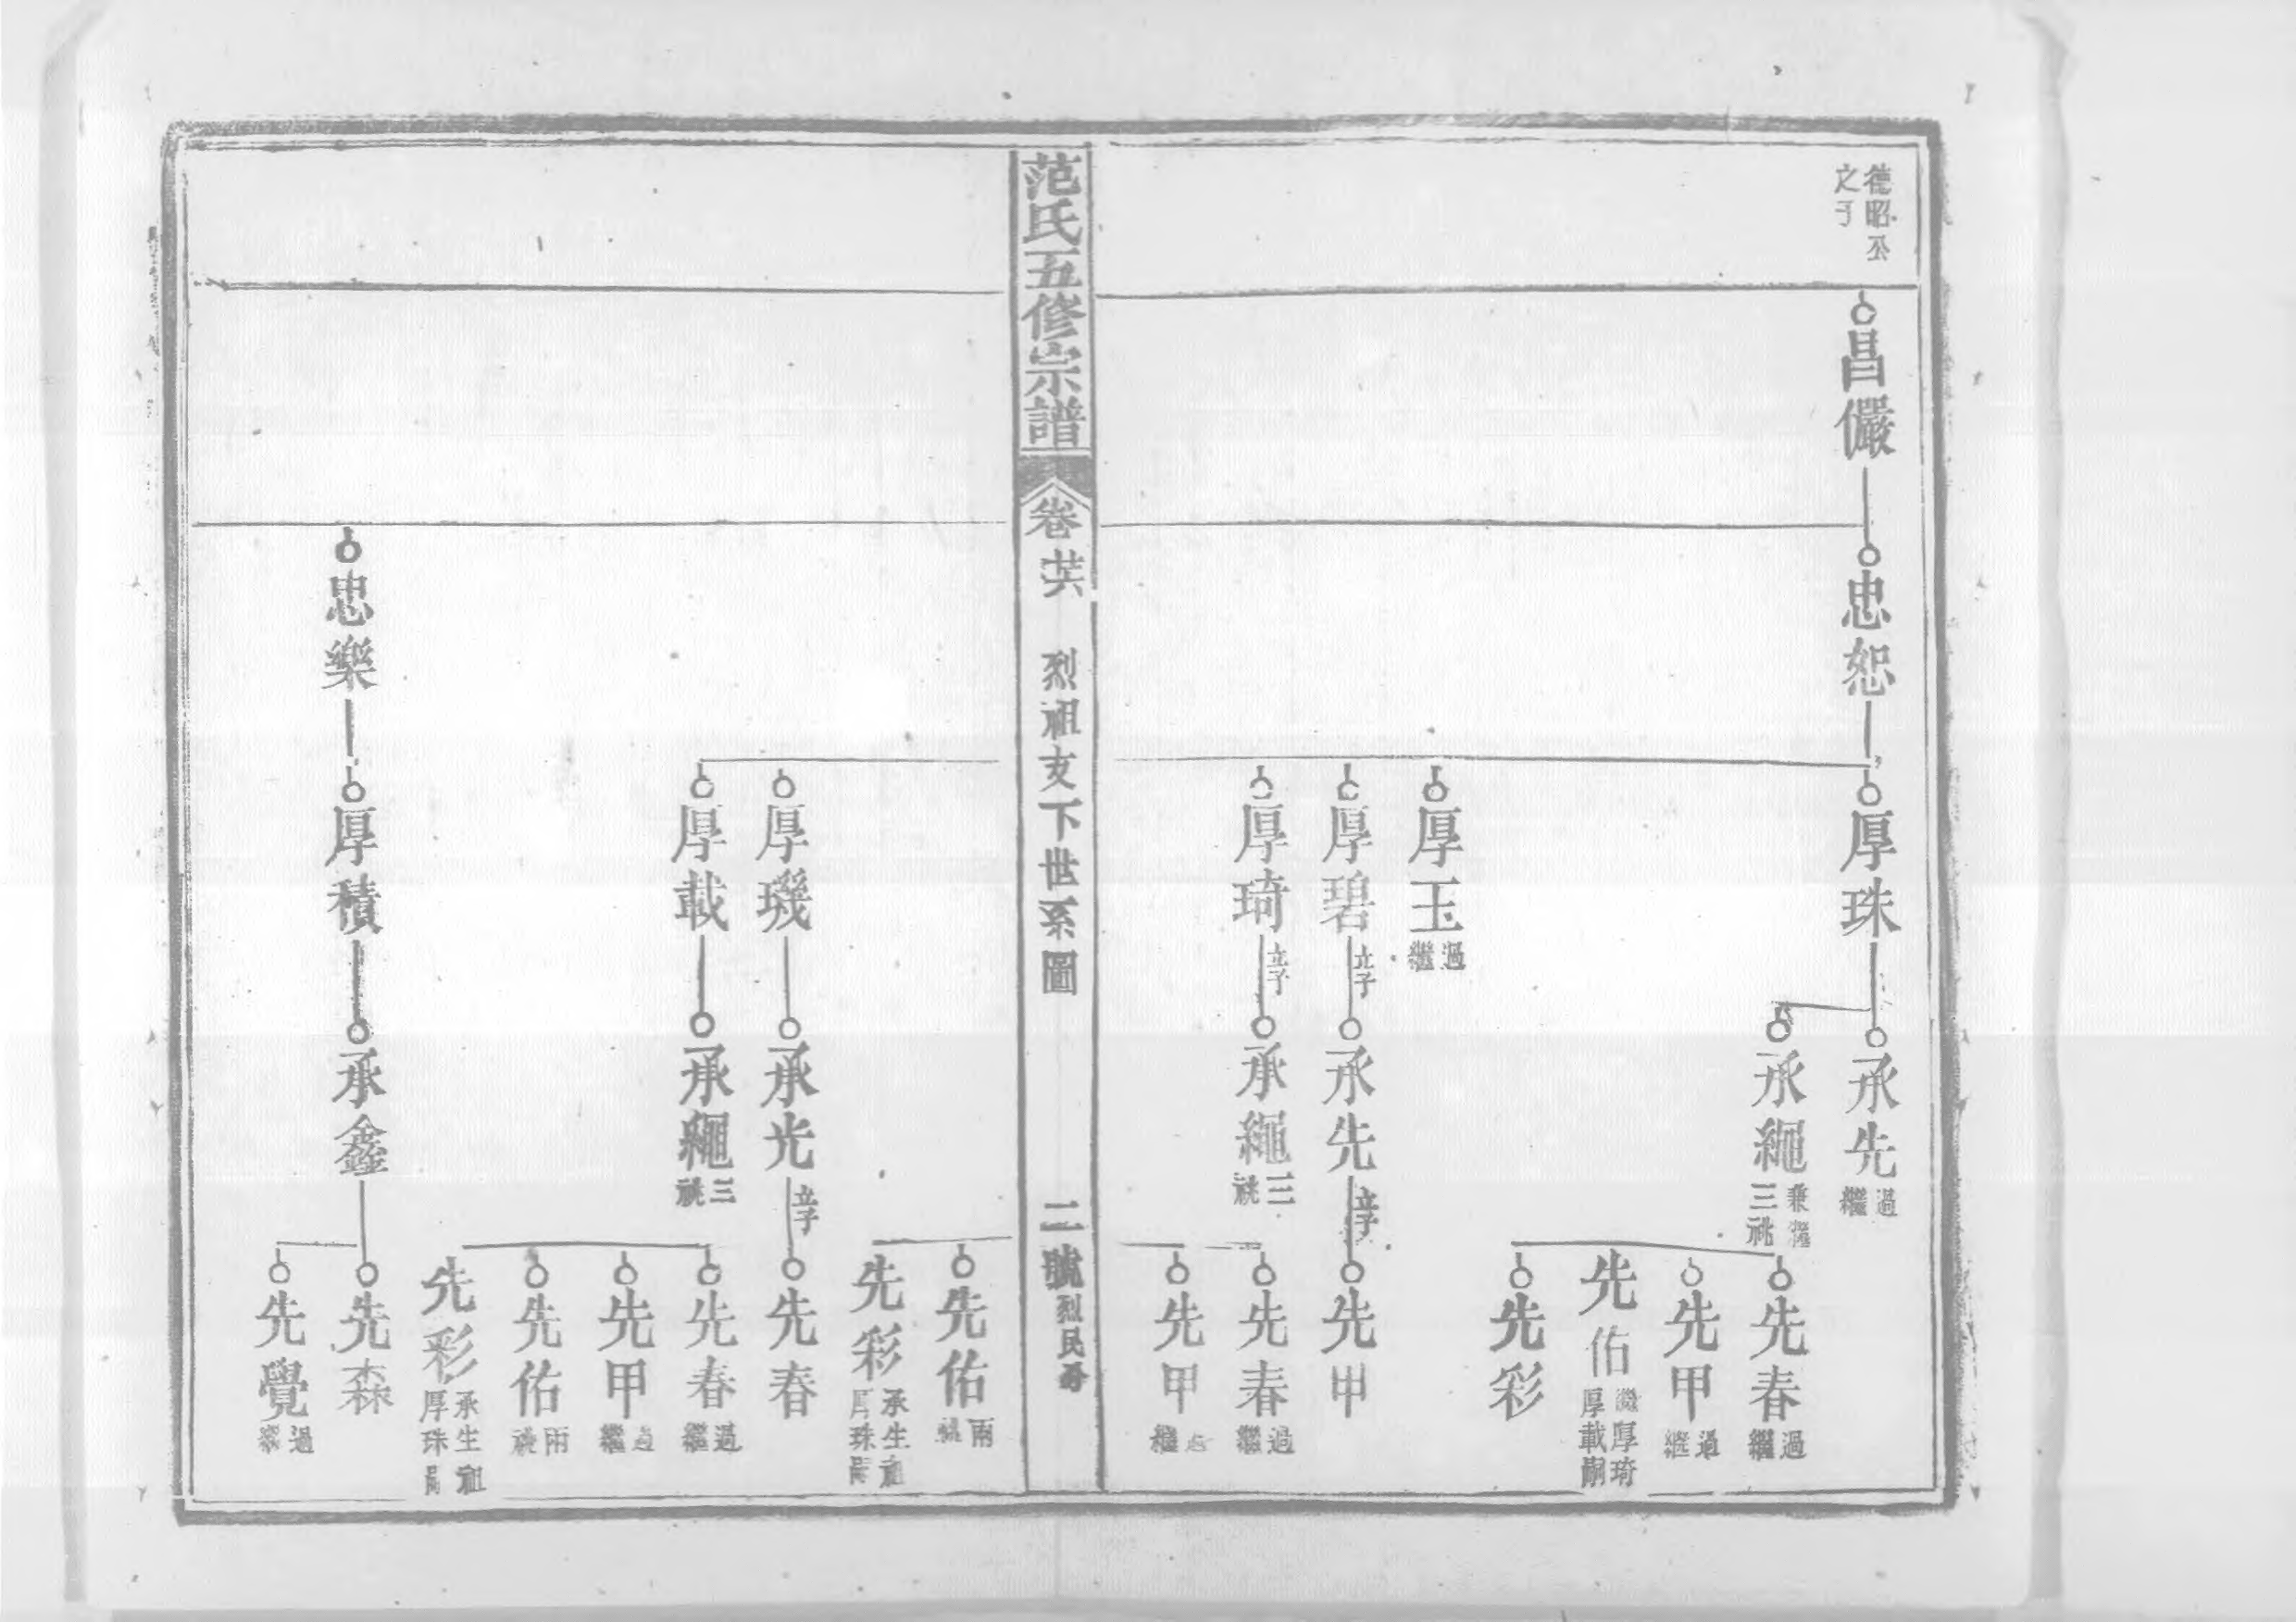 德昭公
之子
昌儼
忠恕
厚珠
承先
過繼
承繩
兼繼
三祧
先春
過繼
先甲
過繼
先佑
繼厚琦
厚載嗣
先彩
厚玉
過繼
厚碧
立子
承先
立子
先甲
厚琦
立子
承繩
三祧
先春
過繼
先甲
過繼
范氏五修宗譜
卷廿六
烈祖支下世系圖
二號
烈民
先佑
兩祧
先彩
承生祖
厚珠嗣
厚璣
承光
立子
先春
厚載
承繩
三祧
先春
過繼
先甲
過繼
先佑
兩祧
先彩
承生祖
厚珠嗣
忠樂
厚積
承鑫
先森
先覺
過繼